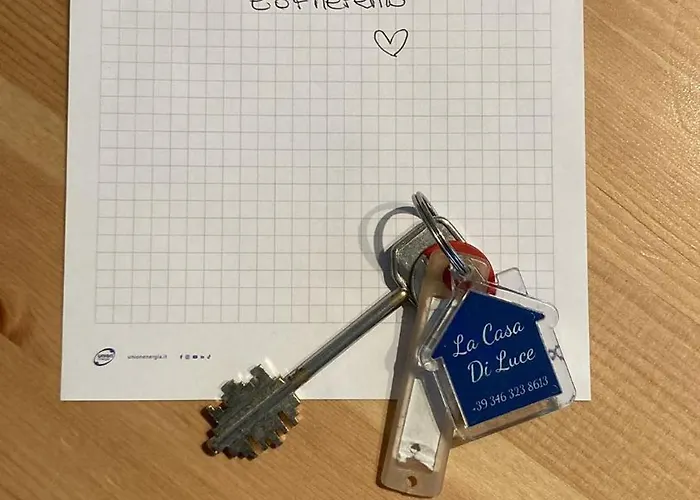 unionenergia.it
La Casa
Di Luce
+39 346 323 8613